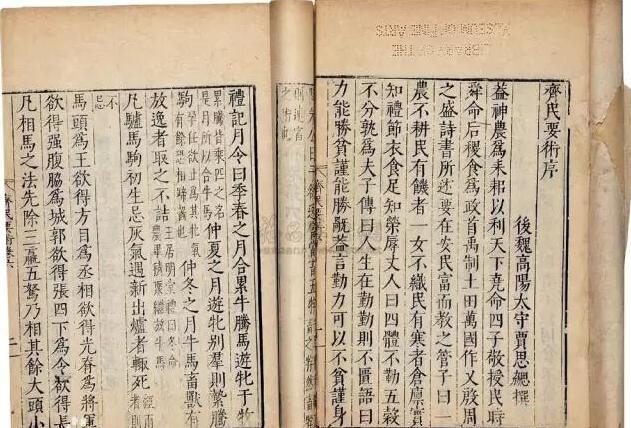 齊民要術序
後魏高陽太守賈思勰撰
葢神農為耒耜以利天下堯命四子敬授民時
舜命后稷食為政首禹制土田萬國作乂殷周
之盛詩書所述要在安民富而教之管子曰一
農不耕民有饑者一女不織民有寒者倉廩實
知禮節衣食足知榮辱丈人曰四體不勤五穀
不分孰為夫子傳曰人生在勤勤則不匱語曰
力能勝貧謹能勝禍葢言勤力可以不貧謹身
LIBRARY OF THE
MUSEUM OF FINE ARTS
則速富
之術也
禮記月令曰季春之月合累牛騰馬遊牝于牧
累騰皆乘匹之名
是月所以合牛馬
仲夏之月遊牝別羣則縶騰
駒
孕任欲止為其牝氣
有餘恐相蹄齧也
仲冬之月牛馬畜獸有
放逸者取之不詰
王居明堂禮曰冬命
農畢積聚繼放牛馬
凡驢馬駒初生忌灰氣遇新出爐者輒死
經雨
者則
不
忌
馬頭為王欲得方目為丞相欲得光脊為將軍
欲得強腹脇為城郭欲得張四下為令欲得長
凡相馬之法先除三羸五駑乃相其餘大頭小
齊民要術卷六
二